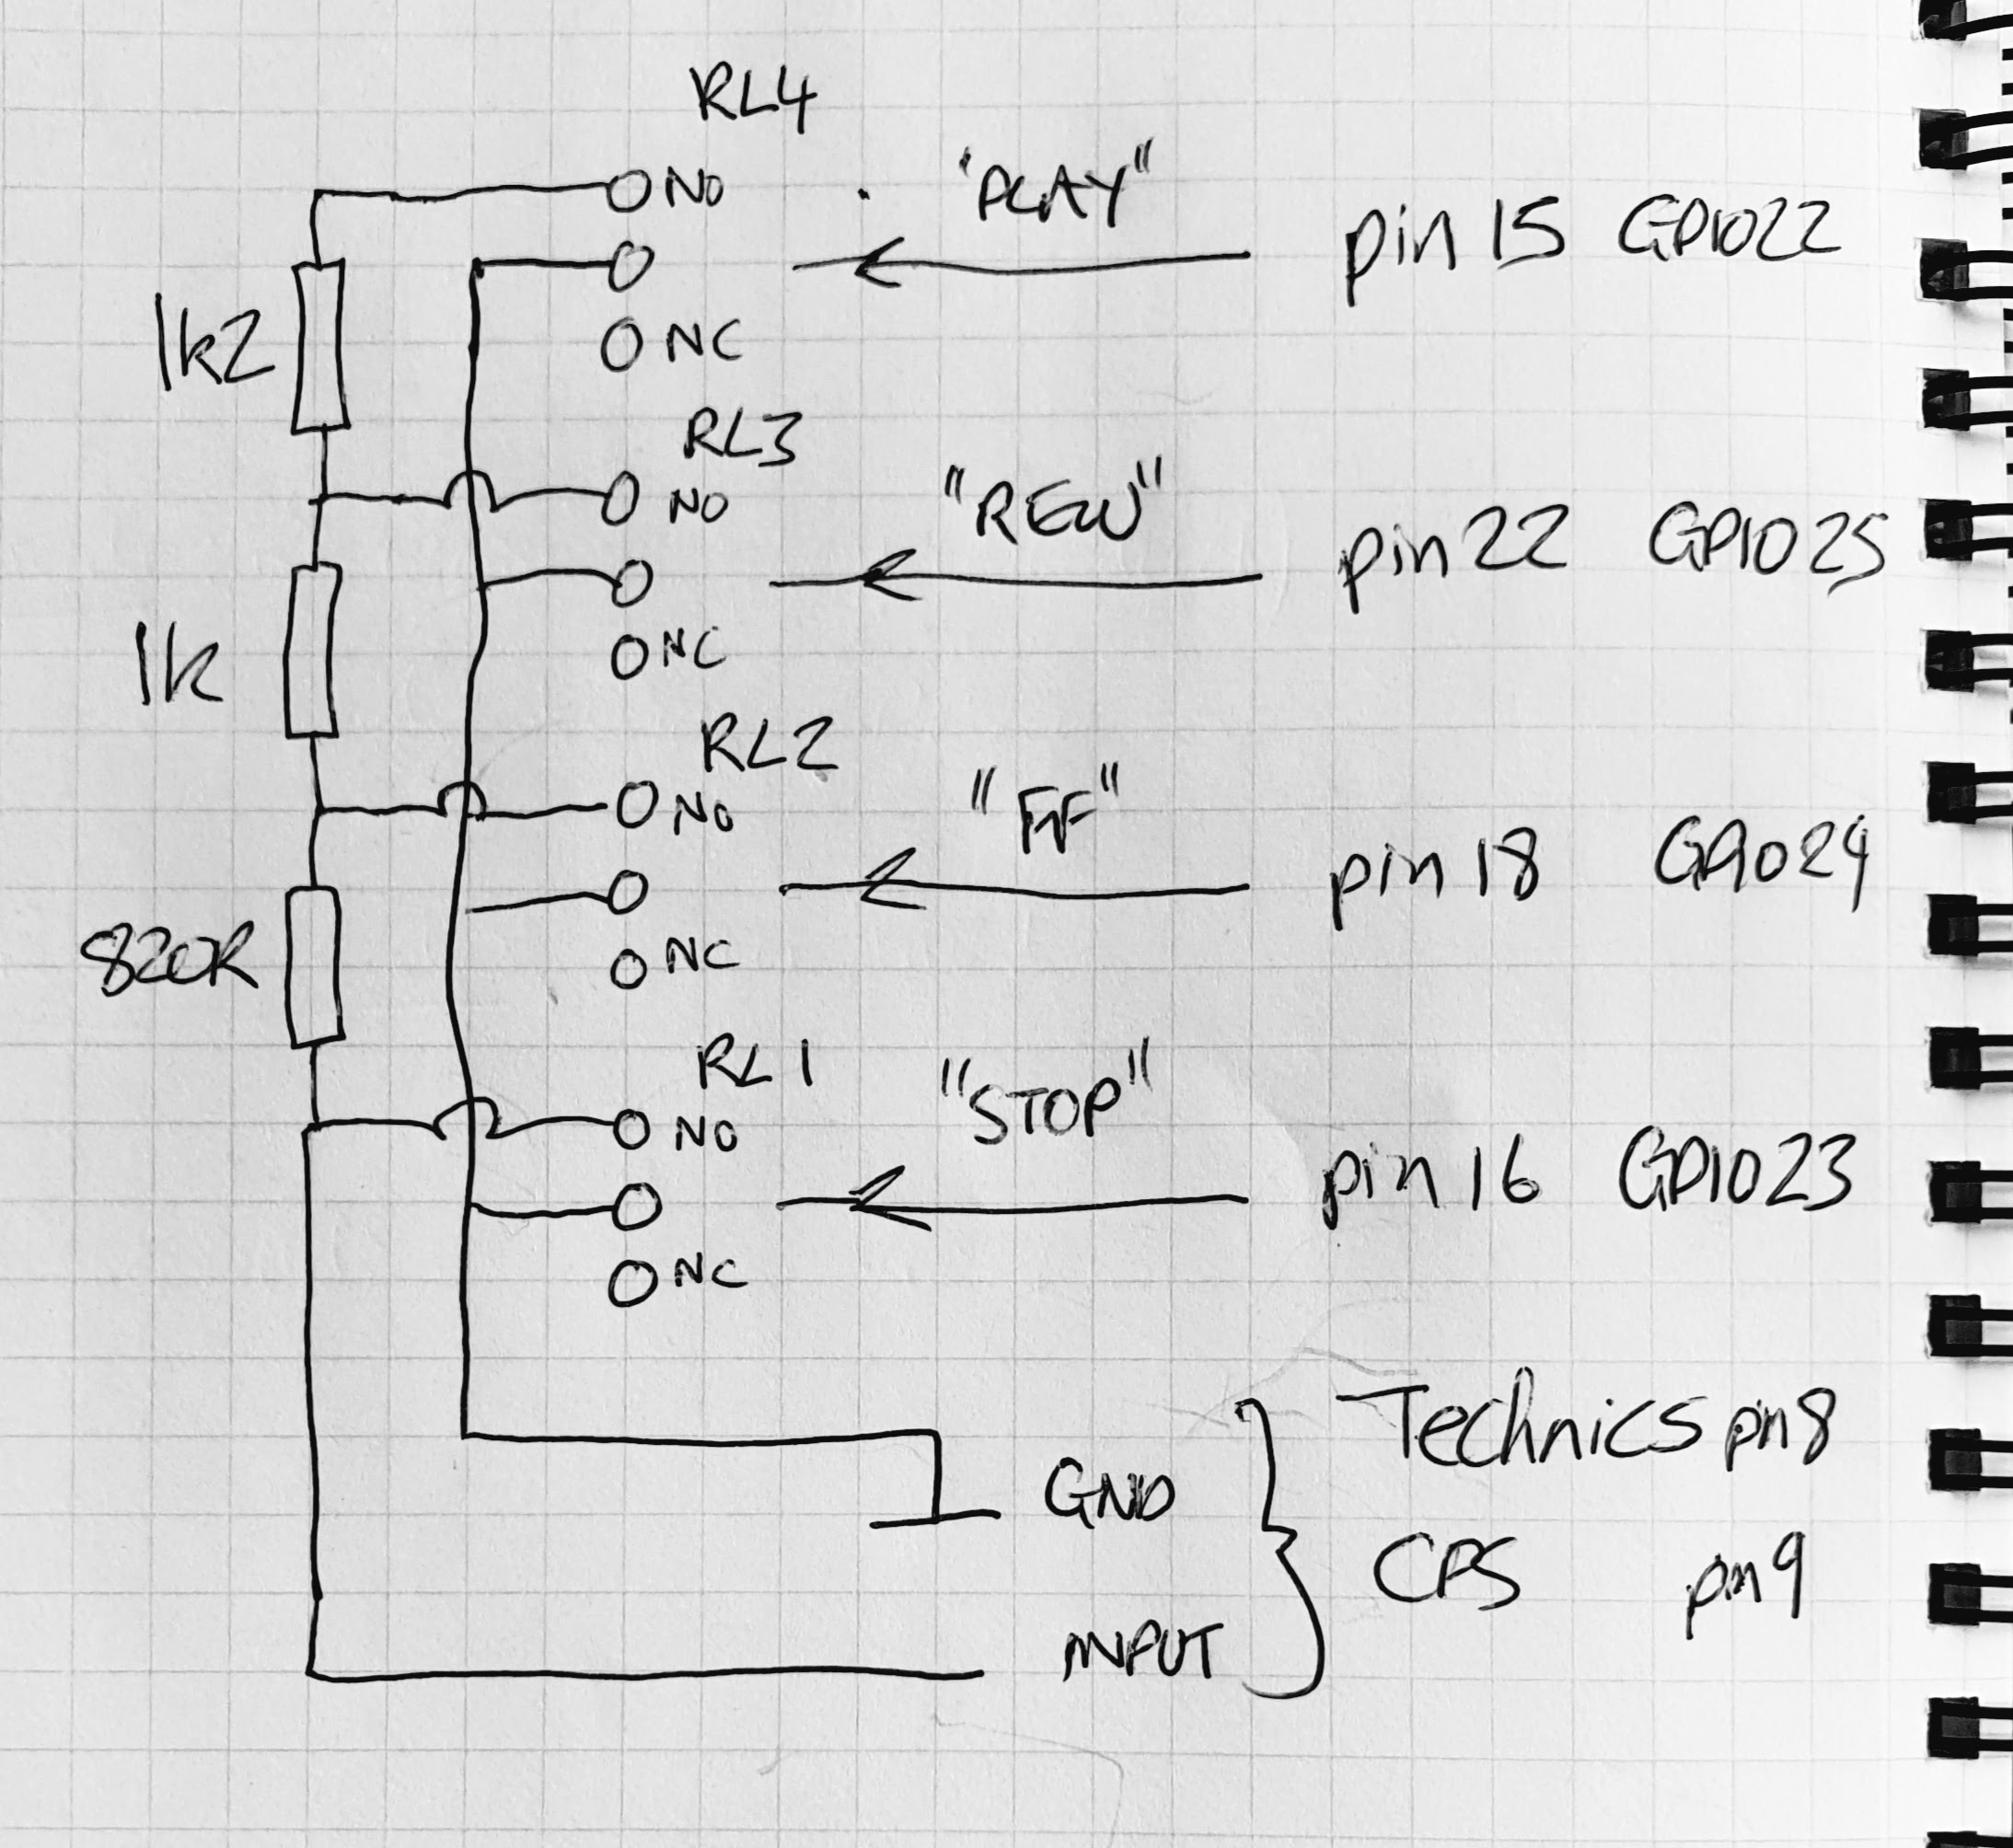 RL4
NO "PLAY" pin 15 GPIO22
1k2
NC
RL3
NO "REW" pin 22 GPIO 25
1k
NC
RL2
NO "FF" pin 18 GPIO 24
820R
NC
RL1
NO "STOP" pin 16 GPIO 23
NC
GND Technics pin 8
CPS pin 9
INPUT